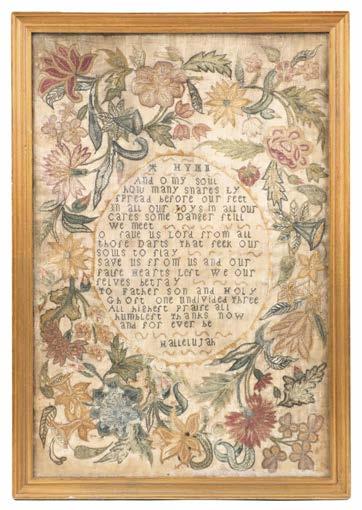 A HYMN
And O my soul
how many snares ly
spread before our feet
in all our Joys in all our
Cares some Danger still
We meet
O save us Lord from all
those Darts that seek our
souls to slay
save us from us and our
false Hearts Left We our
selves betray
To Father son and Holy
Ghost one undivided three
All highest praise all
humblest thanks now
and for ever be
Hallelujah